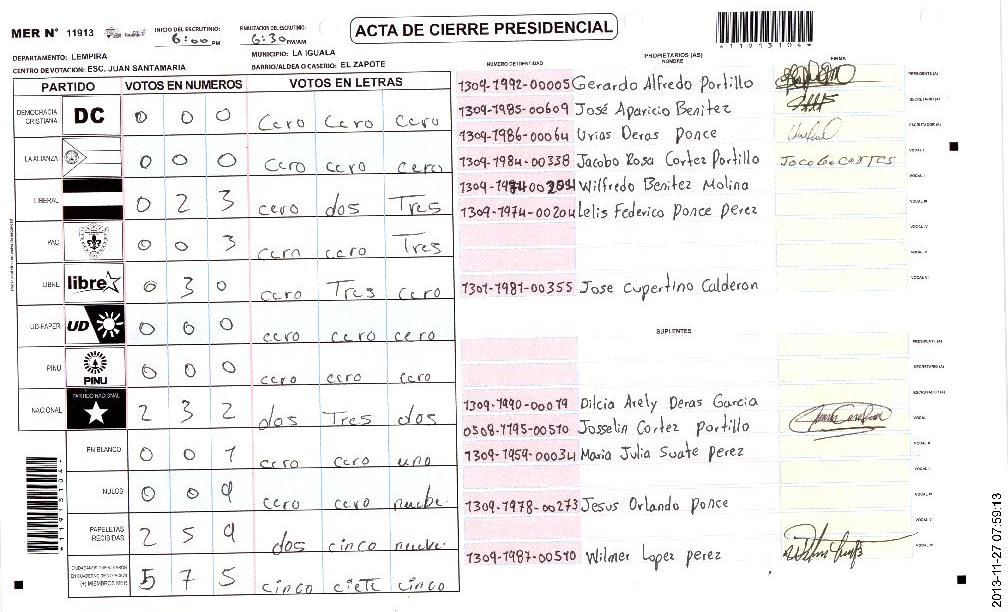 MER N° 11913 INICIO DEL ESCRUTINIO: 6:00 PM FINALIZACION DEL ESCRUTINIO: 6:30 PM/AM
ACTA DE CIERRE PRESIDENCIAL
*11913104*
DEPARTAMENTO: LEMPIRA MUNICIPIO: LA IGUALA
CENTRO DE VOTACION: ESC. JUAN SANTAMARIA BARRIO/ALDEA O CASERIO: EL ZAPOTE
PARTIDO VOTOS EN NUMEROS VOTOS EN LETRAS
DEMOCRACIA CRISTIANA DC 0 0 0 Cero Cero Cero
LA ALIANZA 0 0 0 Cero cero cero
LIBERAL 0 2 3 cero dos Tres
PAC 0 0 3 cero cero Tres
LIBRE libre 0 3 0 cero Tres cero
UD-FAPER UD 0 0 0 cero cero cero
PINU PINU 0 0 0 cero cero cero
NACIONAL PARTIDO NACIONAL 2 3 2 dos Tres dos
EN BLANCO 0 0 1 cero cero uno
NULOS 0 0 9 cero cero nuebe.
PAPELETAS RECIBIDAS 2 5 9 dos cinco nuebe.
5 7 5 cinco ciete cinco
(+) MIEMBROS MER
*11913104*
PROPIETARIOS (AS)
NUMERO DE IDENTIDAD NOMBRE FIRMA
1309-1992-00005 Gerardo Alfredo Portillo PRESIDENTE (A)
1309-1985-00609 José Aparicio Benitez SECRETARIO (A)
1309-1986-00064 Urias Deras Ponce ESCRUTADOR (A)
1309-1984-00338 Jacobo Rosa Cortez Portillo Jocobo cortes VOCAL I
Wilfredo Benitez Molina VOCAL II
1309-1974-00204 Lelis Federico Ponce Perez VOCAL III
VOCAL IV
VOCAL V
1301-1981-00355 Jose Cupertino Calderon VOCAL VI
SUPLENTES
PRESIDENTE (A)
SECRETARIO (A)
1309-1990-00079 Dilcia Arely Deras Garcia ESCRUTADOR (A)
0508-1995-00510 Josselin Cortez Portillo VOCAL I
1309-1959-00034 Maria Julia Suate perez VOCAL II
VOCAL III
1309-1978-00273 Jesus Orlando Ponce VOCAL IV
VOCAL V
1309-1987-00510 Wilmer Lopez perez VOCAL VI
2013-11-27 07:59:13